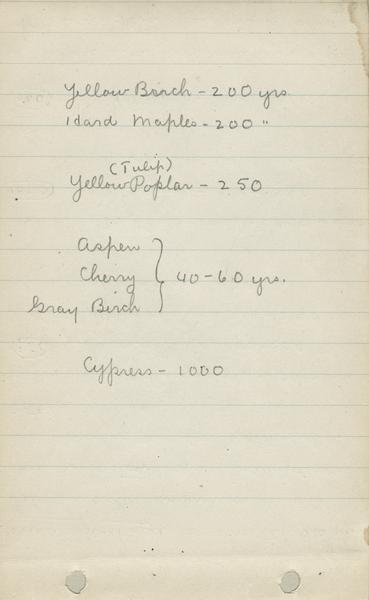 Yellow Birch - 200 yrs
Hard Maples - 200 "
(Tulip)
Yellow Poplar - 250
Aspen
Cherry } 40-60 yrs.
Gray Birch
Cypress - 1000